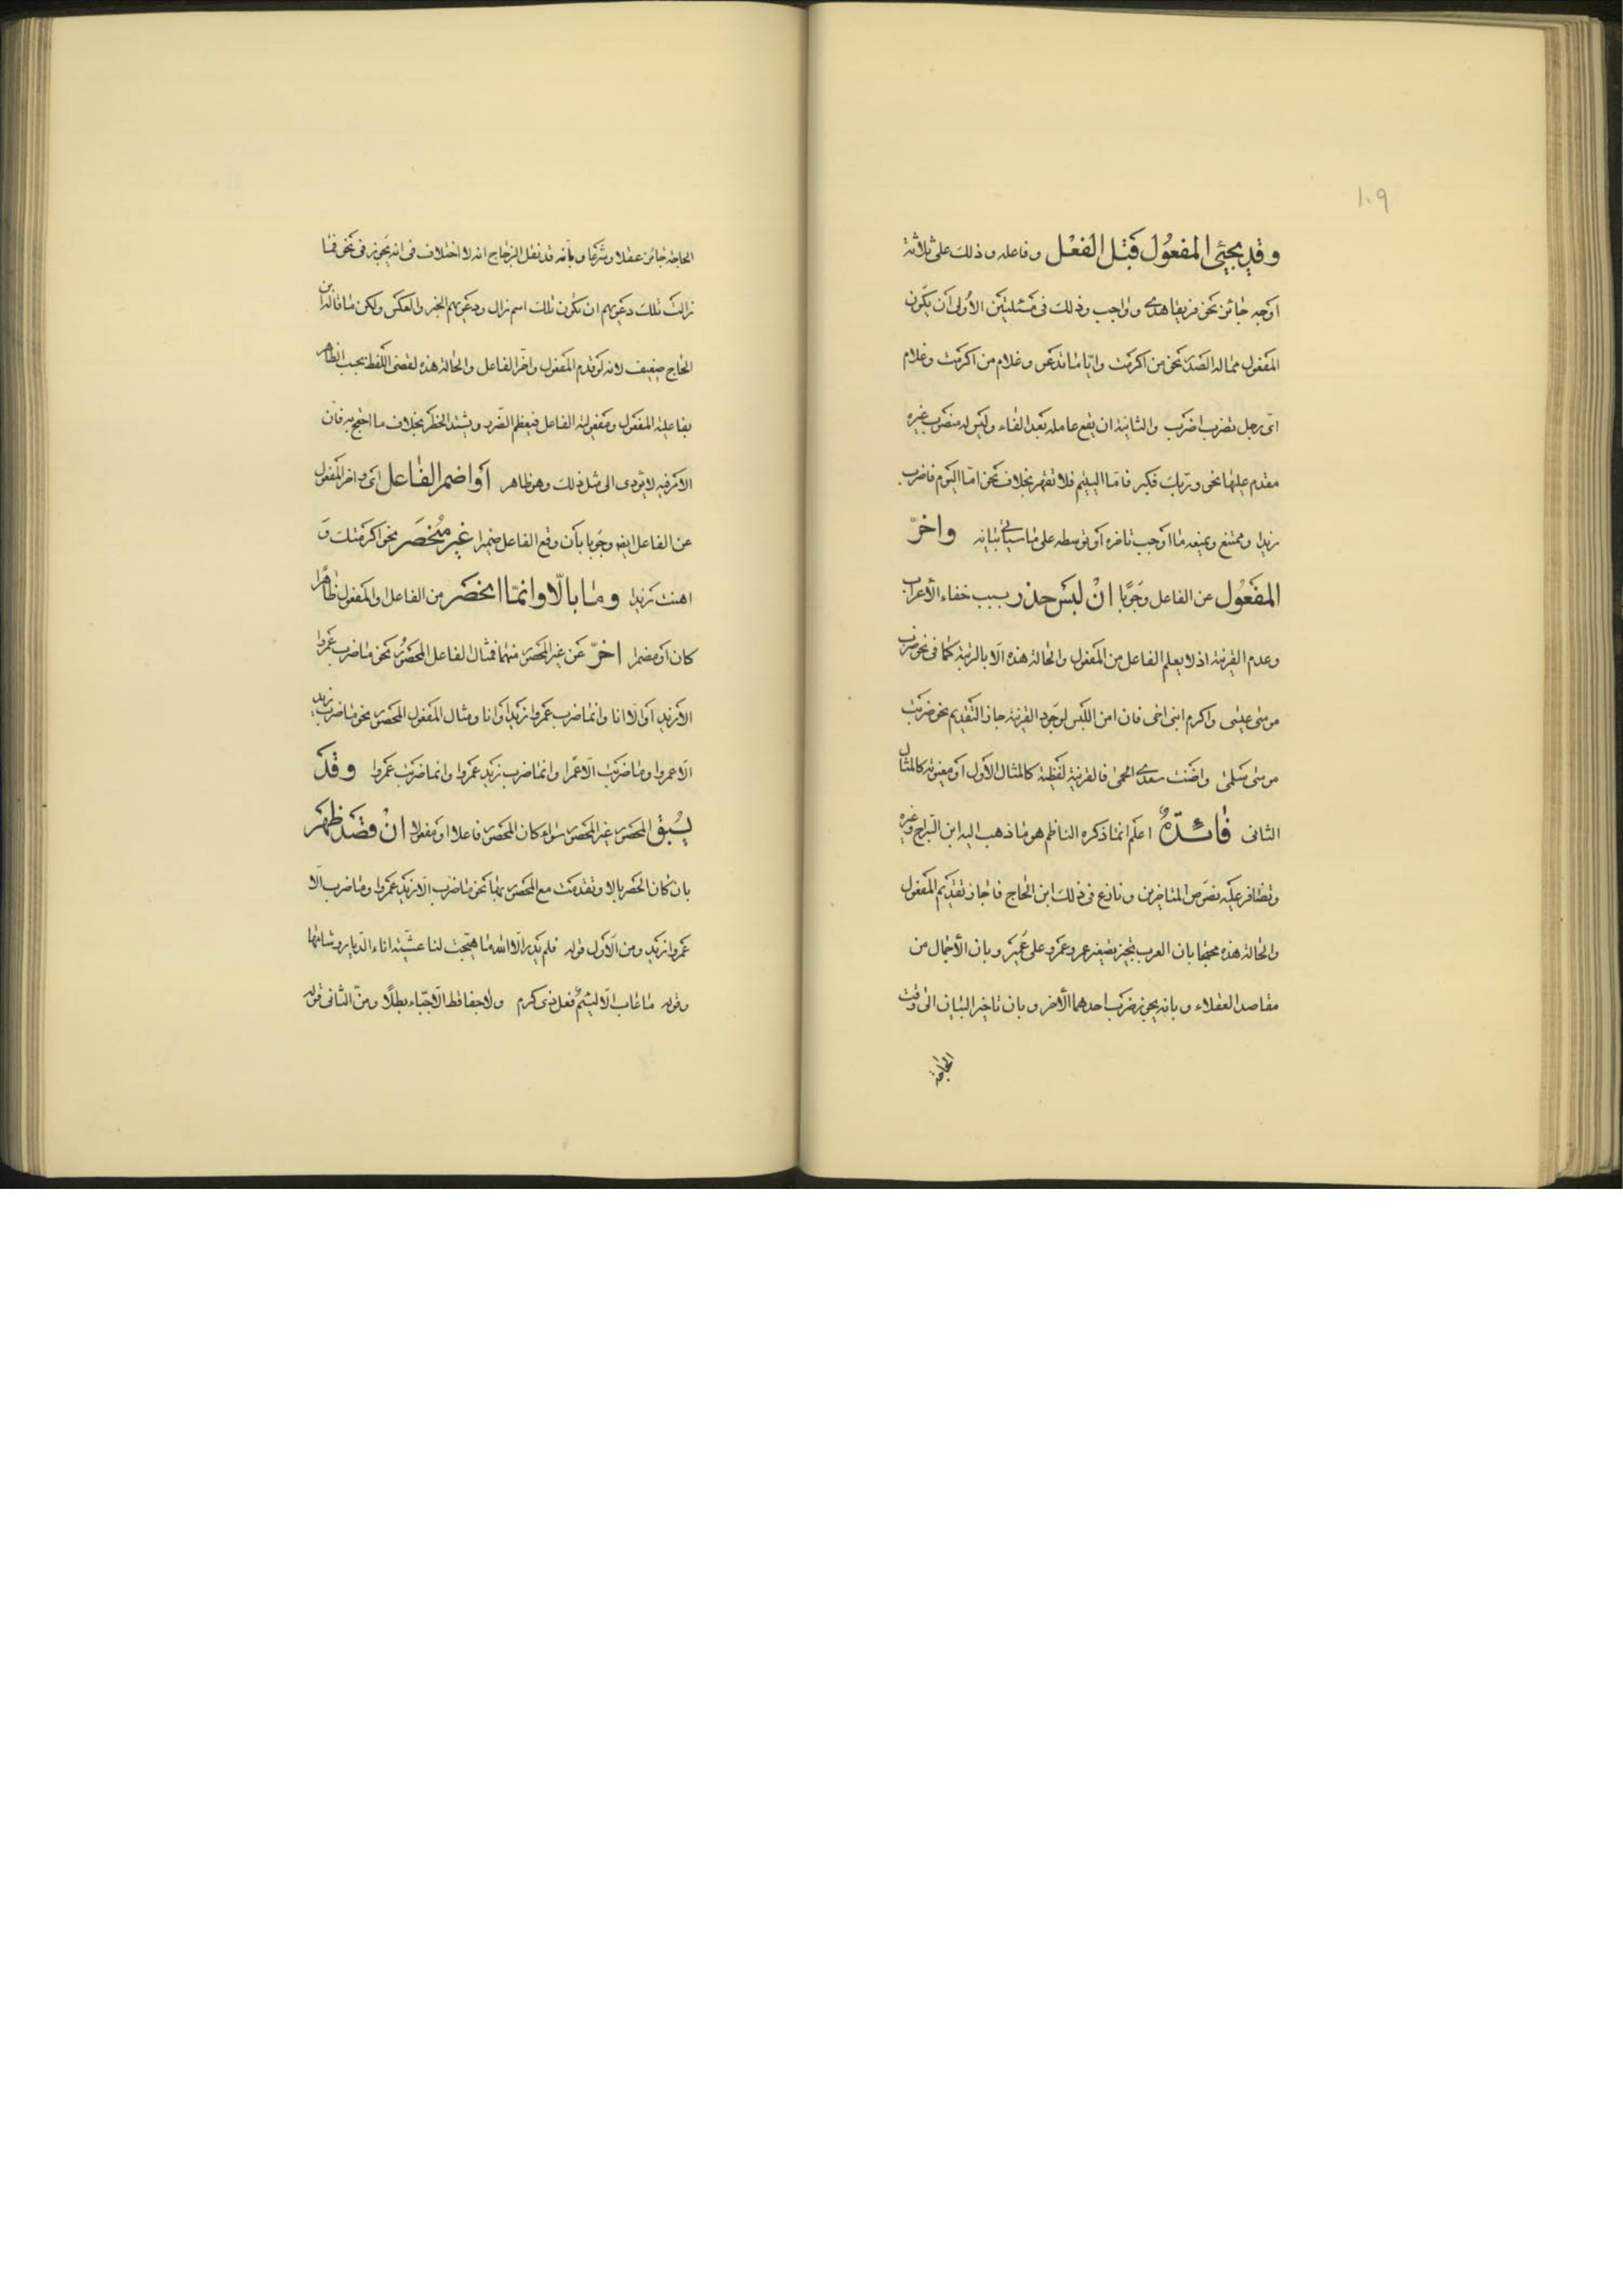 ١٠٩
وقد يجئ المفعول قبل الفعل وفاعله وذلك على ثلاثة
اوجه جائز نحو فريقا هدى وواجب وذلك فى مسئلتين الاولى ان يكون
المفعول مما له الصدر نحو من اكرمت وايّا ما تدعو وغلام من اكرمت وغلام
اىّ رجل تضرب اضرب والثانية ان يقع عامله بعد الفاء وليس له منصوب غيره
مقدم عليها نحو وربك فكبر فامّا اليتيم فلا تقهر بخلاف نحو امّا اليوم فاضرب
زيدا وممتنع ويمنعه ما اوجب تاخره او توسطه على ما سياتى بيانه واخّر
المفعول عن الفاعل وجوبا ان لبس حذر بسبب خفاء الاعراب
وعدم القرينة اذ لا يعلم الفاعل من المفعول والحالة هذه الّا بالرتبة كما فى نحو ضرب
موسى عيسى واكرم ابنى اخى فان امن اللبس لوجود القرينة جاز التقديم نحو ضربت
موسى سلمى واضنت سعدى الحمى فالقرينة لفظية كالمثال الاول او معنوية كالمثال
الثانى فائدة اعلم انما ذكره الناظم هو ما ذهب اليه ابن السّراج وغيره
وتضافر عليه نصوص المتاخرين ونازع فى ذلك ابن الحاج فاجاز تقديم المفعول
والحالة هذه محتجا بان العرب تجيز تصغير عمر وعمرو على عمير وبان الاجمال من
مقاصد العقلاء وبانه يجوز ضرب احدهما الاخر وبان تاخير البيان الى وقت
الحاجة
الحاجة جائز عقلا وشرعا وبانه قد نقل الزجاج انه لا اختلاف فى انه يجوز فى نحو فما
زالت تلك دعويهم ان تكون تلك اسم زال ودعويهم الخبر والعكس ولكن ما قاله ابن
الحاج ضعيف لانه لو قدم المفعول واخّر الفاعل والحالة هذه لقضى اللفظ بحسب الظاهر
بفاعلية المفعول ومفعولية الفاعل فيعظم الضّرر ويشتد الخطر بخلاف ما احتج به فان
الامر فيه لا يؤدى الى مثل ذلك وهو ظاهر او اضمر الفاعل اى واخر المفعول
عن الفاعل ايضا وجوبا بان وقع الفاعل ضميرا غير منحصر نحو اكرمتك و
اهنت زيدا وما بالّا وانّما انحصر من الفاعل او المفعول ظاهرا
كان او مضمرا اخّر عن غير المحصور منهما فمثال الفاعل المحصور نحو ما ضرب عمروا
الّا زيد او الّا انا وانما ضرب عمروا زيد او انا ومثال المفعول المحصور نحو ما ضرب زيد
الّا عمروا وما ضربت الّا عمرا وانما ضرب زيد عمروا وانما ضربت عمروا وقد
يسبق المحصور غير المحصور سواء كان المحصور فاعلا او مفعولا ان قصد ظهر
بان كان الحصر بالا وتقدمت مع المحصور بها نحو ما ضرب الّا زيد عمروا وما ضرب الّا
عمروا زيد ومن الاول قوله فلم يدر الّا الله ما هيّجت لنا عشيّة اناء الدّيار وشامها
وقوله ما عاب الّا لئيم فعل ذى كرم ولا جفا قط الّا جبّاء بطلًا ومن الثانى قوله